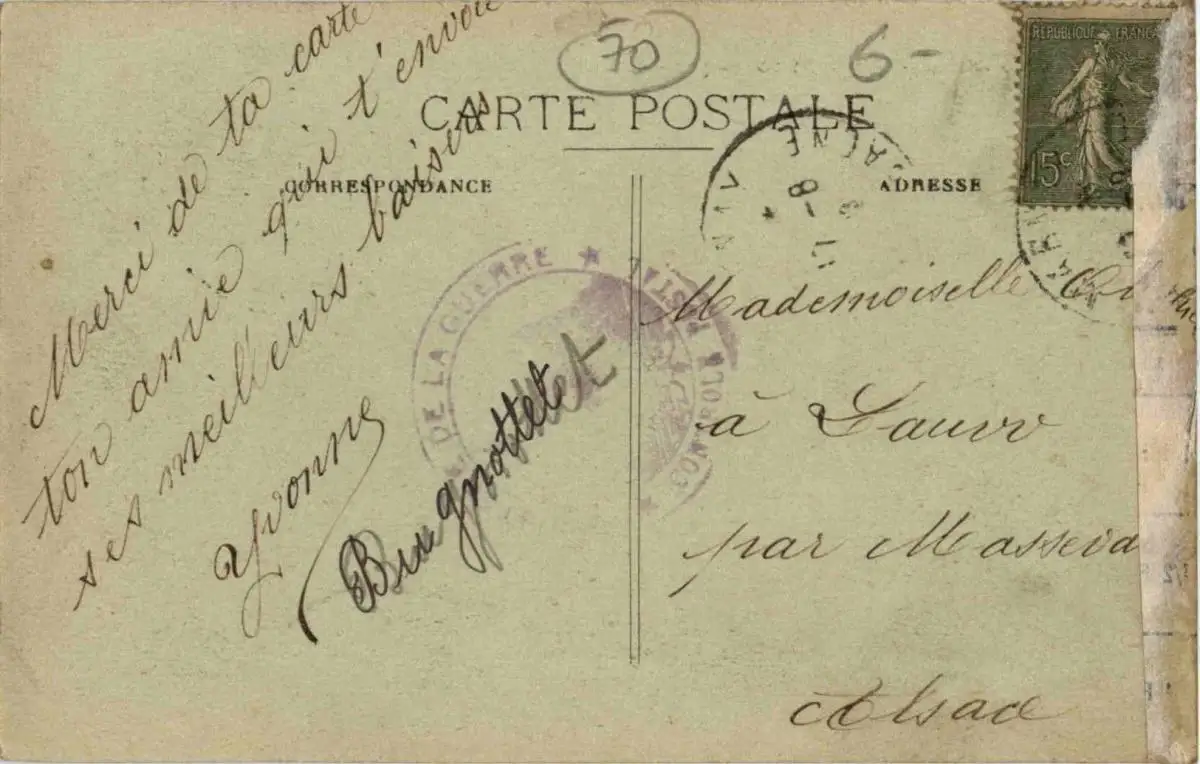 70
6-
CARTE POSTALE
CORRESPONDANCE
ADRESSE
REPUBLIQUE FRANCAI
15c
Merci de ta carte
ton amie qui t'envoie
ses meilleurs baisers
Yvonne
Bugnottet
DE LA GUERRE ★ POSTAL
Mademoiselle
à Lauw
par Masseva
Alsace